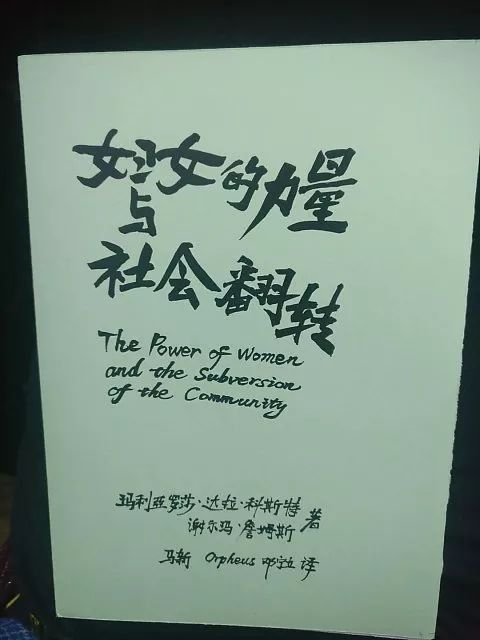 妇女的力量
与
社会翻转
The Power of Women
and the Subversion
of the Community
玛利亚罗莎·达拉·科斯特
谢尔玛·詹姆斯 著
马新 Orpheus 译